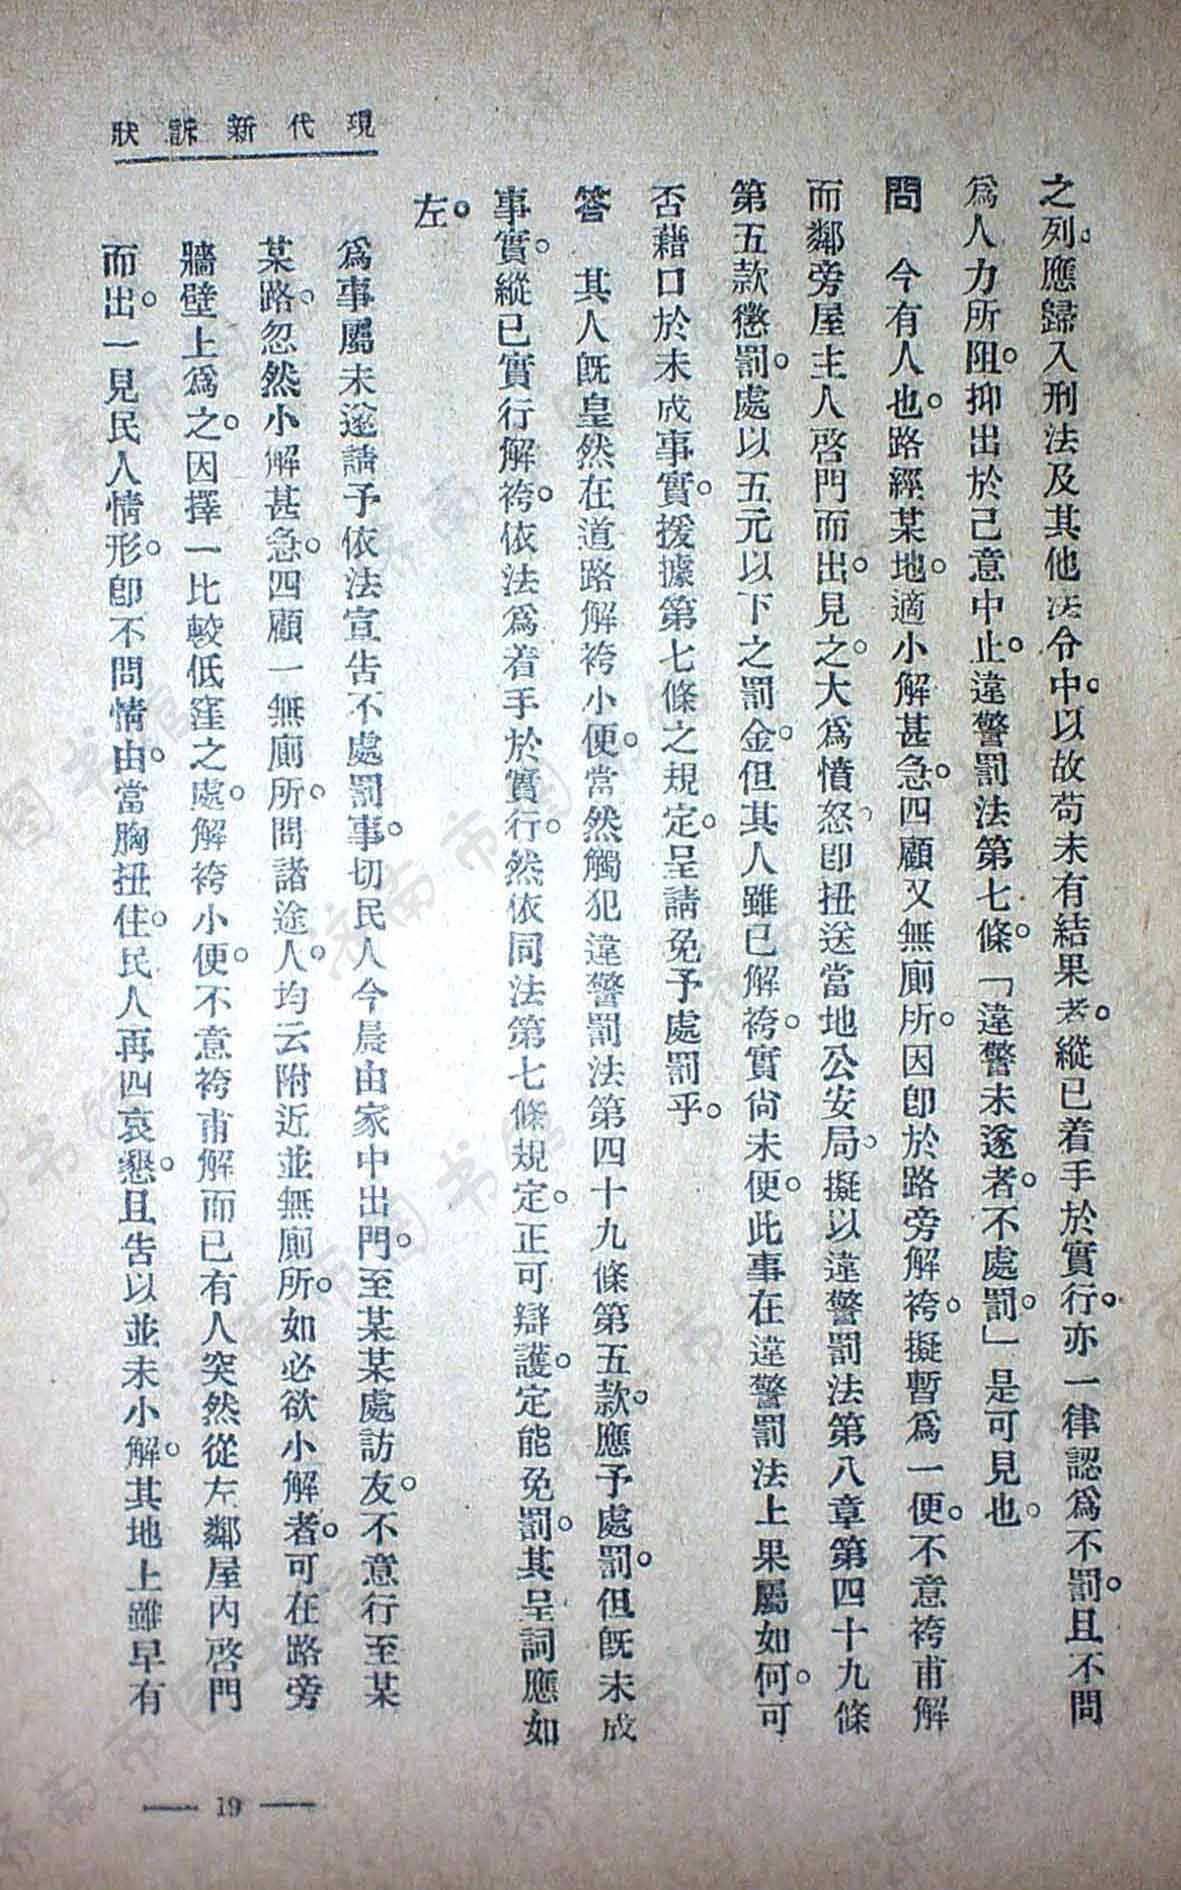 現代新訴狀
之列。應歸入刑法及其他法令中。以故苟未有結果者。縱已着手於實行。亦一律認爲不罰。且不問
爲人力所阻。抑出於己意中止。違警罰法第七條。「違警未遂者。不處罰。」是可見也。
問　今有人也。路經某地。適小解甚急。四顧又無廁所。因即於路旁解袴。擬暫爲一便。不意袴甫解
而鄰旁屋主人啓門而出。見之。大爲憤怒。即扭送當地公安局。擬以違警罰法第八章第四十九條
第五款懲罰。處以五元以下之罰金。但其人雖已解袴。實尚未便。此事在違警罰法上果屬如何。可
否藉口於未成事實。援據第七條之規定。呈請免予處罰乎。
答　其人既皇然在道路解袴小便。當然觸犯違警罰法第四十九條第五款。應予處罰。但既未成
事實。縱已實行解袴。依法爲着手於實行。然依同法第七條規定。正可辯護。定能免罰。其呈詞應如
左。
爲事屬未遂請予依法宣告不處罰事。切民人今晨由家中出門。至某某處訪友。不意行至某
某路。忽然小解甚急。四顧一無廁所。問諸途人。均云附近並無廁所。如必欲小解者。可在路旁
牆壁上爲之。因擇一比較低窪之處。解袴小便。不意袴甫解而已有人突然從左鄰屋內啓門
而出。一見民人情形。即不問情由。當胸扭住。民人再四哀懇。且告以並未小解。其地上雖早有
— 19 —